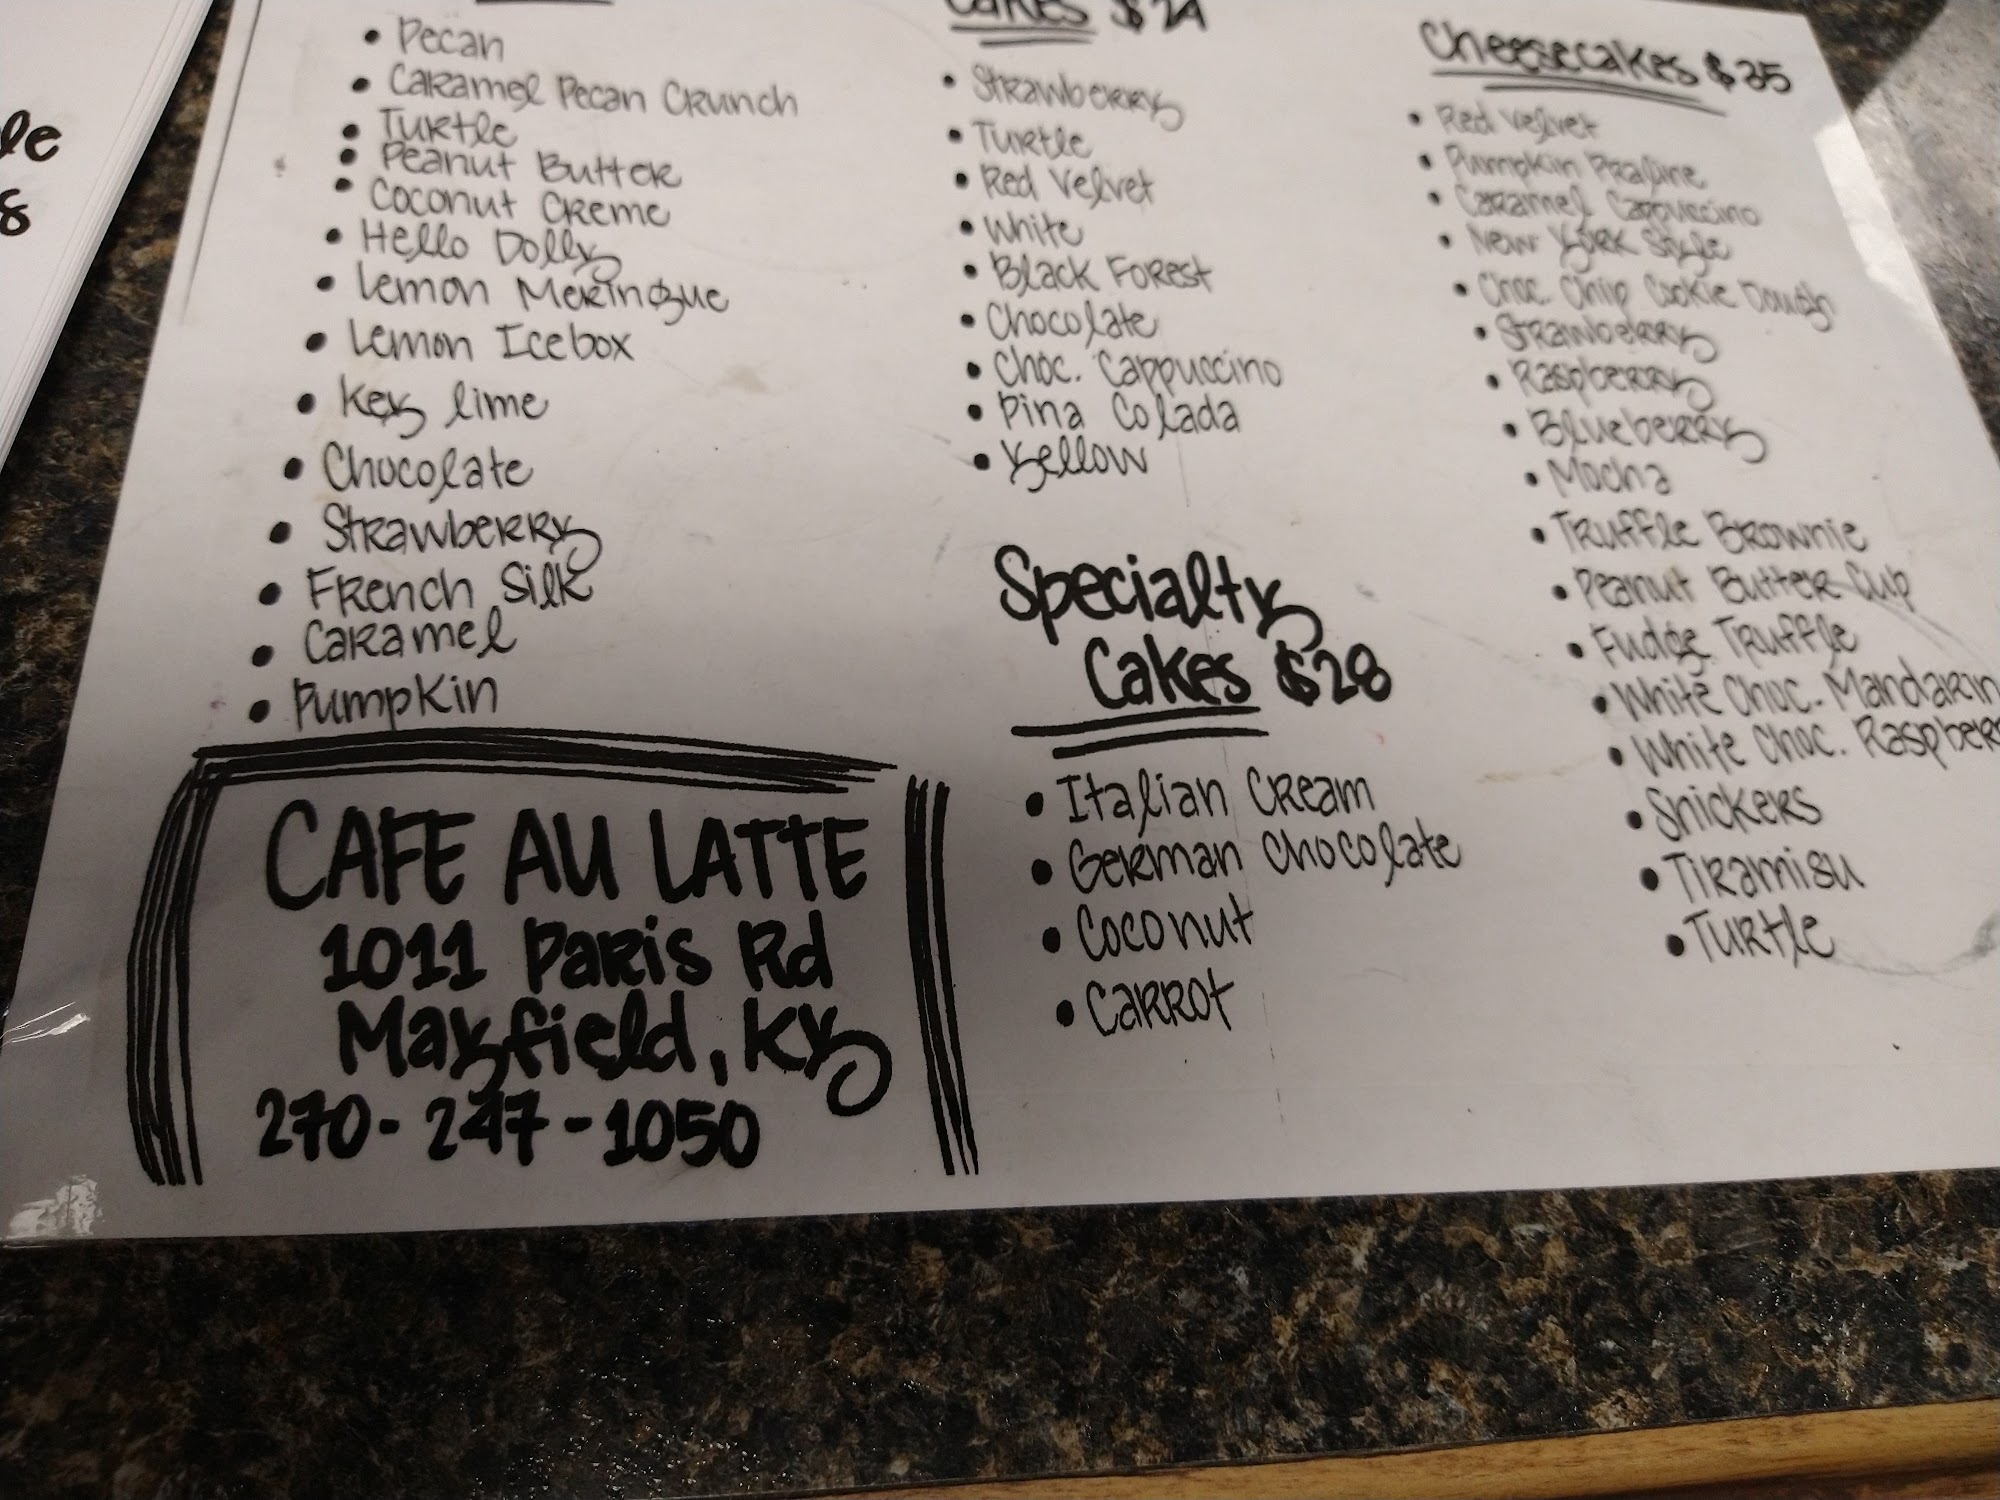 le
8
Pecan
Caramel Pecan Crunch
Turtle
Peanut Butter
Coconut Creme
Hello Dolly
Lemon Meringue
Lemon Icebox
Key lime
Chocolate
Strawberry
French Silk
Caramel
Pumpkin
CAFE AU LATTE
1011 Paris Rd
Mayfield, Ky
270-247-1050
Cakes $24
Strawberry
Turtle
Red Velvet
White
Black Forest
Chocolate
Choc. Cappuccino
Pina Colada
Yellow
Specialty
Cakes $28
Italian Cream
German Chocolate
Coconut
Carrot
Cheesecakes $35
Red Velvet
Pumpkin Praline
Caramel Cappuccino
New York Style
Choc. Chip Cookie Dough
Strawberry
Raspberry
Blueberry
Mocha
Truffle Brownie
Peanut Butter Cup
Fudge Truffle
White Choc. Mandarin
White Choc. Raspber
Snickers
Tiramisu
Turtle